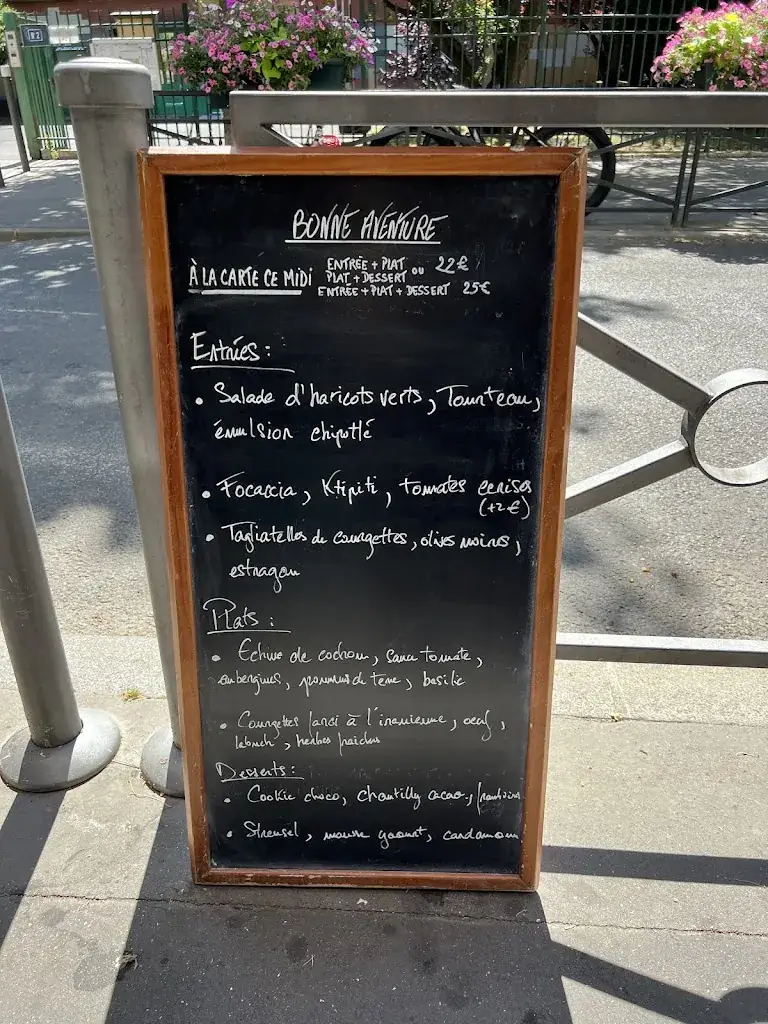 N°2
BONNE AVENTURE
À LA CARTE CE MIDI
ENTRÉE + PLAT
PLAT + DESSERT ou 22€
ENTREE + PLAT + DESSERT 25€
Entrées :
• Salade d'haricots verts, Tourteau,
émulsion chipotlé
• Focaccia, Ktipiti, tomates cerises
(+2€)
• Tagliatelles de courgettes, olives noires,
estragon
Plats :
• Echine de cochon, sauce tomate,
aubergines, pommes de terre, basilic
• Courgettes farci à l'iranienne, oeuf,
labneh, herbes fraiches
Desserts :
• Cookie choco, chantilly cacao, framboises
• Streusel, mousse yaourt, cardamom